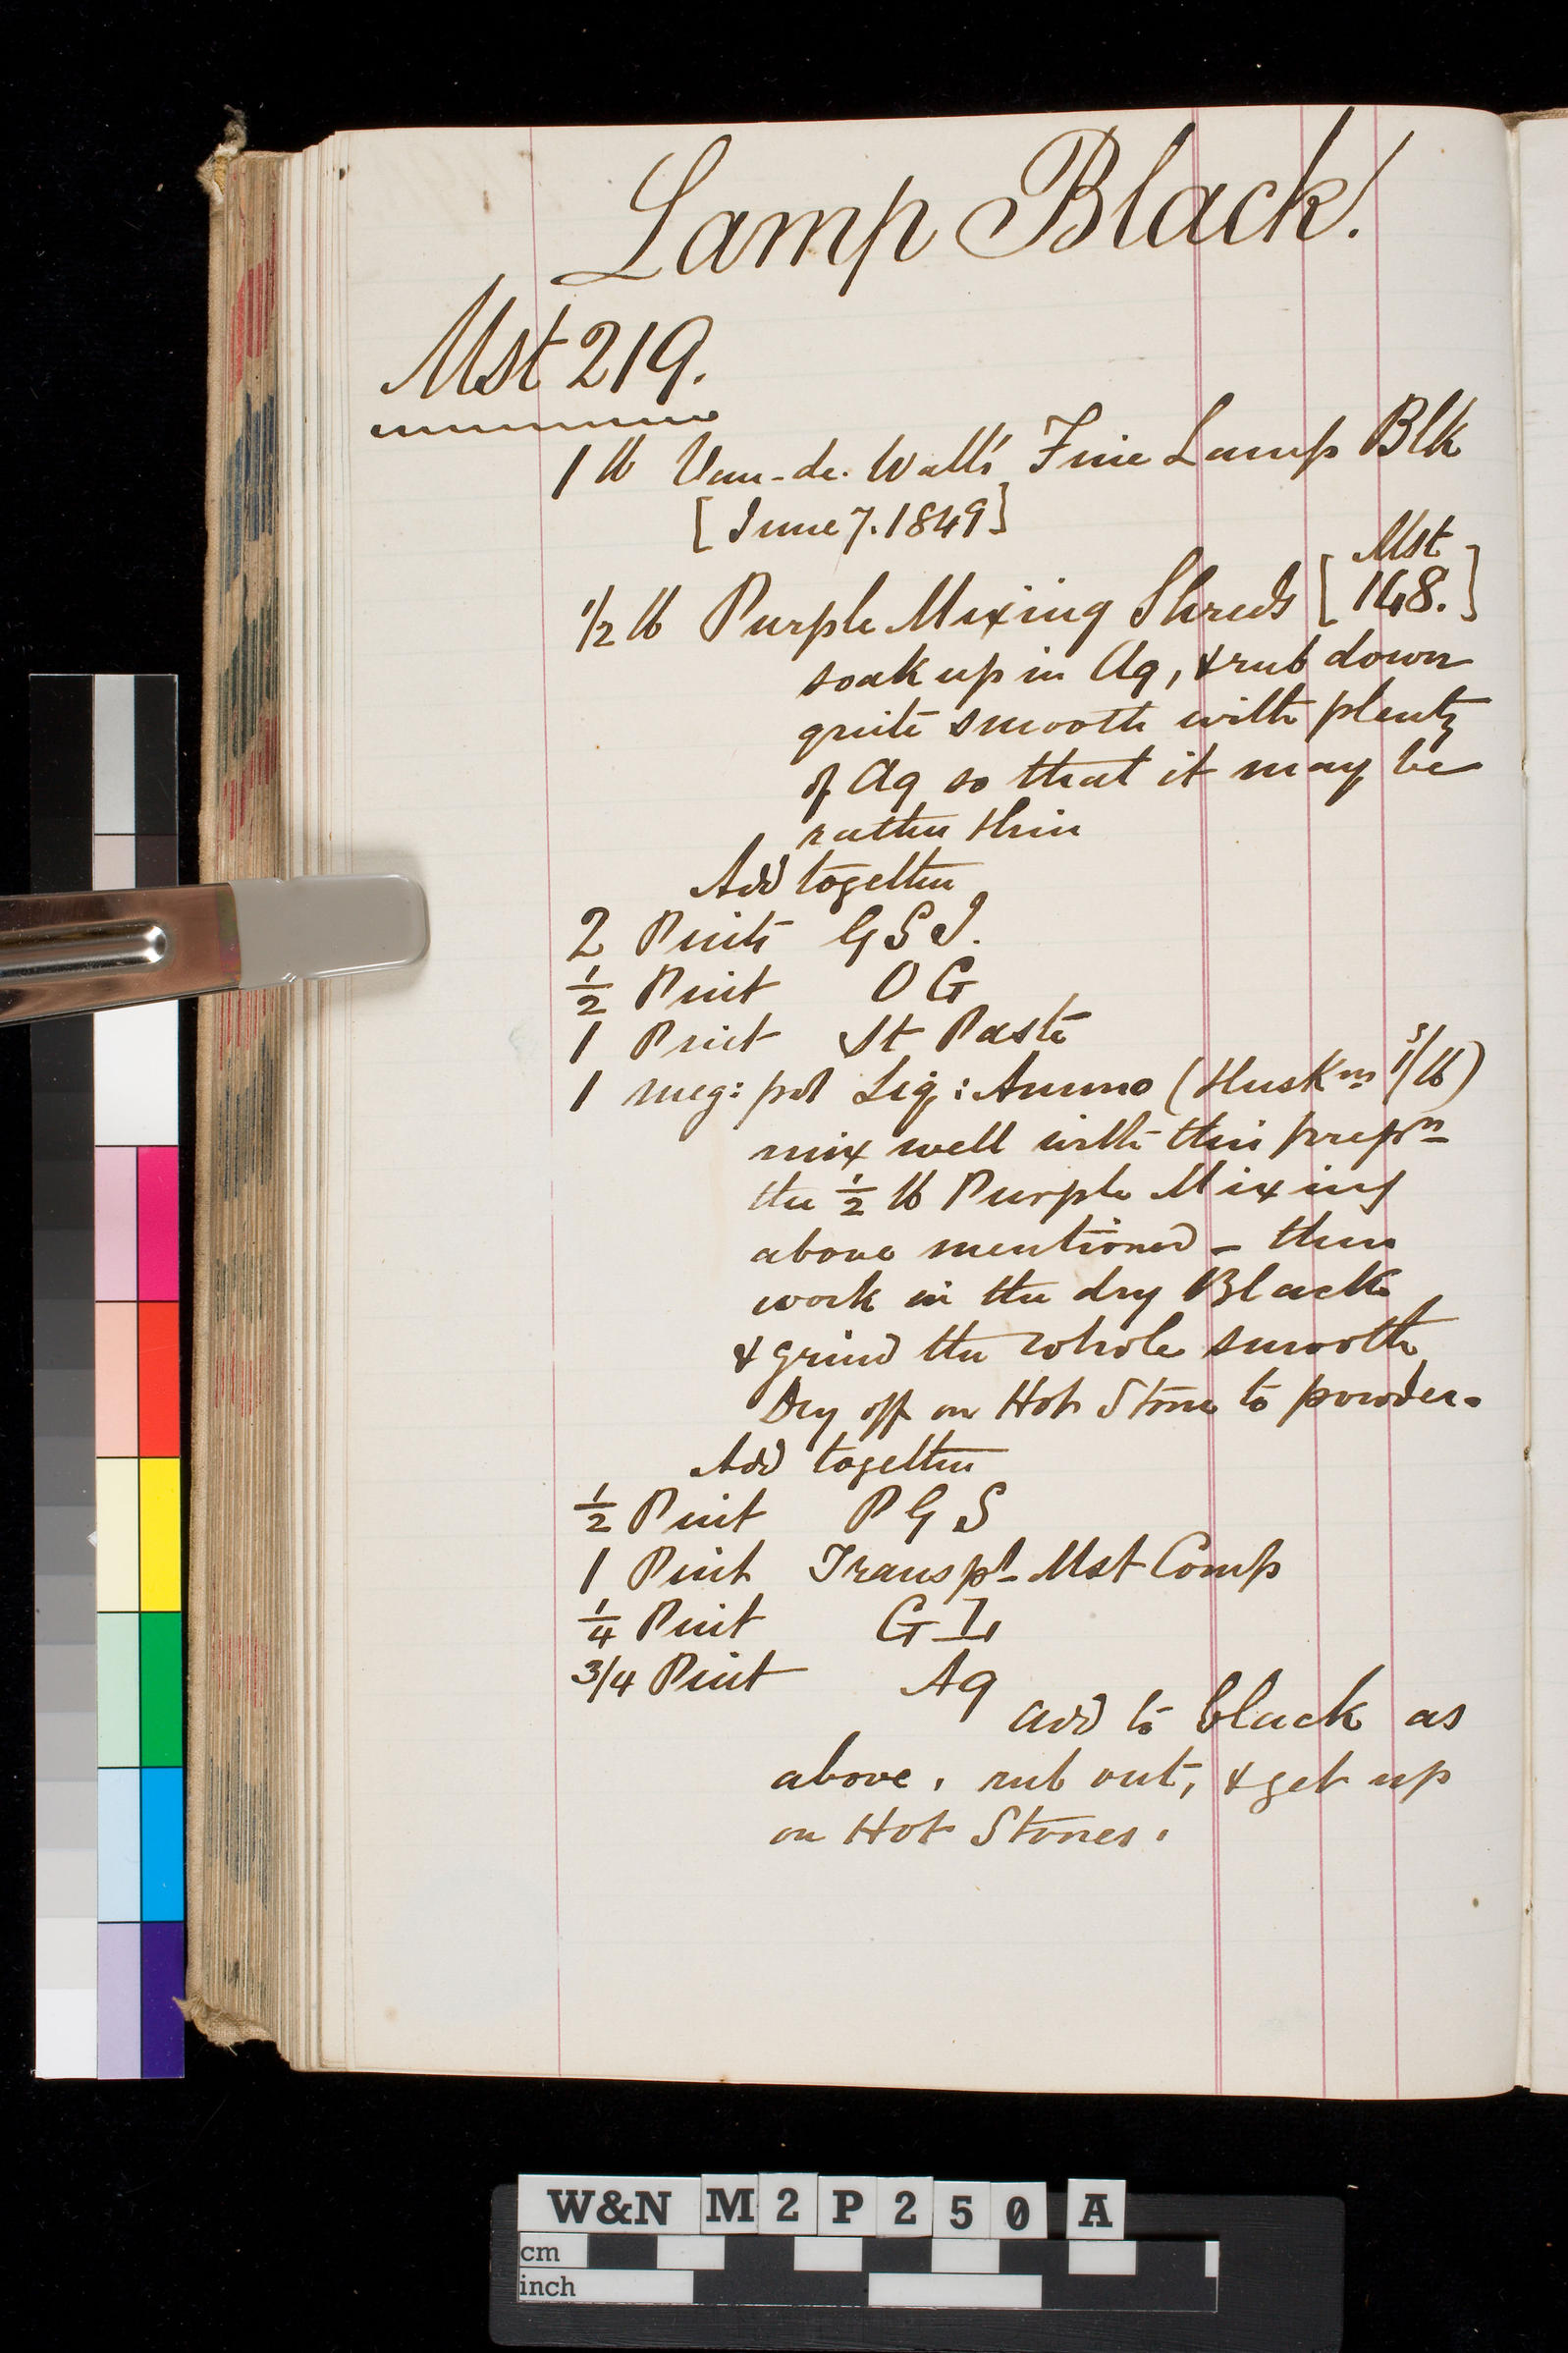 Lamp Black!
Mst 219.
1 lb Van-de-Wall's Fine Lamp Blk
[June 7. 1849]
1/2 lb Purple Mixing Shreds [Mst 148.]
soak up in Aq, & rub down
quite smooth with plenty
of Aq so that it may be
rather thin
Add together
2 Pints GSI.
1/2 Pint OG
1 Pint St Paste
1 meg: pot Liq: Ammo (Huskn 1/ lb)
mix well with this prepn
the 1/2 lb Purple Mixing
above mentioned - then
work in the dry Black
& grind the whole smooth
Dry off on Hot Stone to powder.
Add together
1/2 Pint PGS
1 Pint Transpt Mst Comp
1/4 Pint G
3/4 Pint Aq
add to black as
above, rub out, & get up
on Hot Stones.
W&N M2P250 A
cm
inch